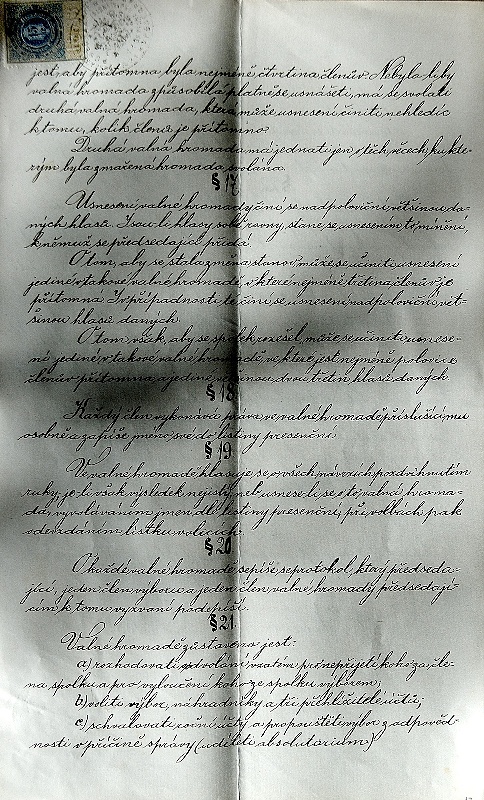 jest, aby přítomna byla nejméně čtvrtina členův. Nebyla-li by
valná hromada způsobila platně se usnášeti, má se svolati
druhá valná hromada, která může usnesení činiti nehledíc
k tomu, kolik členů je přítomno.
Druhá valná hromada má jednati jen o těch věcech, ku kte-
rým byla zmařená hromada svolána.
§ 17.
Usnesení valné hromady činí se nadpoloviční většinou da-
ných hlasů. Jsou-li hlasy sobě rovny, stane se usnesením to mínění,
k němuž se předsedající přidá.
O tom, aby se stala změna stanov, může se učiniti usnesení
jedině v takové valné hromadě, v které nejméně třetina členův je
přítomna. I v případnosti té činí se usnesení nadpoloviční vět-
šinou hlasů daných.
O tom však, aby se spolek rozešel, může se učiniti usnese-
ní jedině v takové valné hromadě, ve které jest nejméně polovice
členův přítomna, a jedině většinou dvou třetin hlasů daných.
§ 18.
Každý člen vykonává práva ve valné hromadě příslušící mu
osobně a zapíše jméno své do listiny presenční.
§ 19.
Ve valné hromadě hlasuje se o všech návrzích pozdvihnutím
ruky, je-li však výsledek nejistý neb usnese-li se o to valná hroma-
da, vyvoláváním jmen dle listiny presenční, při volbách pak
odevzdáním lístků volicích.
§ 20.
O každé valné hromadě sepíše se protokol, který předseda-
jící, jeden člen výboru a jeden člen valné hromady předsedají-
cím k tomu vyzvaný podepíší.
§ 21.
Valné hromadě zůstaveno jest:
a) rozhodovati o odvolání vzatém pro nepřijetí koho za čle-
na spolku a pro vyloučení koho ze spolku výborem;
b) voliti výbor, náhradníky a tři přehlížitele účtů;
c) schvalovati roční účty a propouštěti výbor z odpověd-
nosti v příčině správy (uděliti absolutorium)